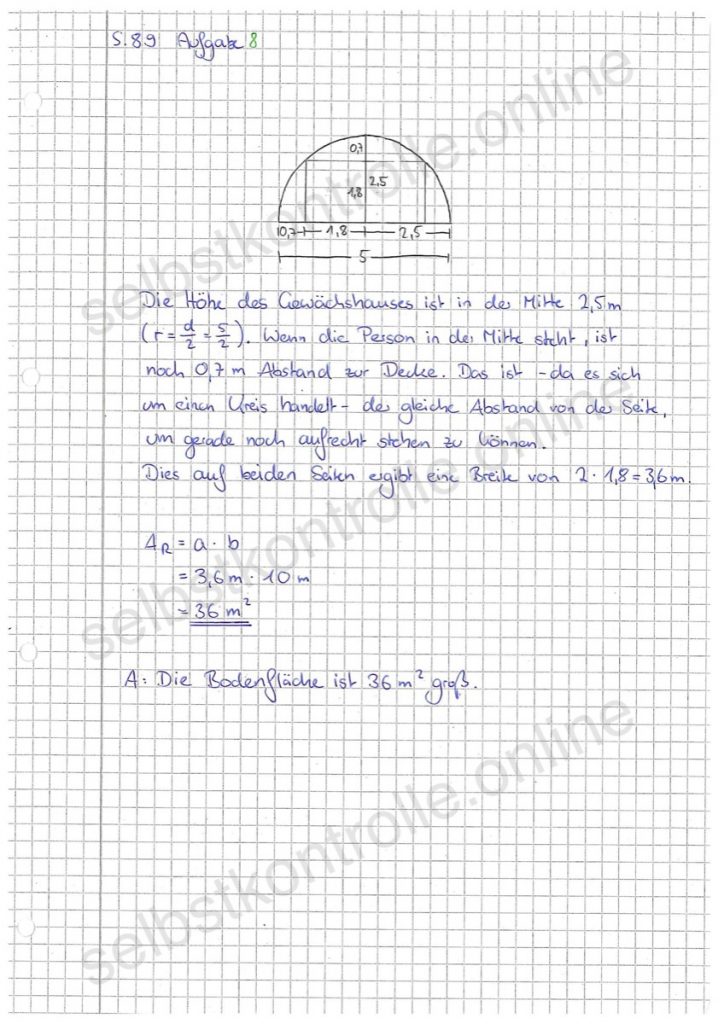 S.89 Aufgabe 8
0,7
2,5
1,8
0,7 1,8 2,5
5
Die Höhe des Gewächshauses ist in der Mitte 2,5 m
(r = d/2 = 5/2). Wenn die Person in der Mitte steht, ist
noch 0,7 m Abstand zur Decke. Das ist - da es sich
um einen Kreis handelt - der gleiche Abstand von der Seite,
um gerade noch aufrecht stehen zu können.
Dies auf beiden Seiten ergibt eine Breite von 2 · 1,8 = 3,6 m.
A_R = a · b
= 3,6 m · 10 m
= 36 m²
A: Die Bodenfläche ist 36 m² groß.
selbstkontrolle.online
selbstkontrolle.online
selbstkontrolle.online